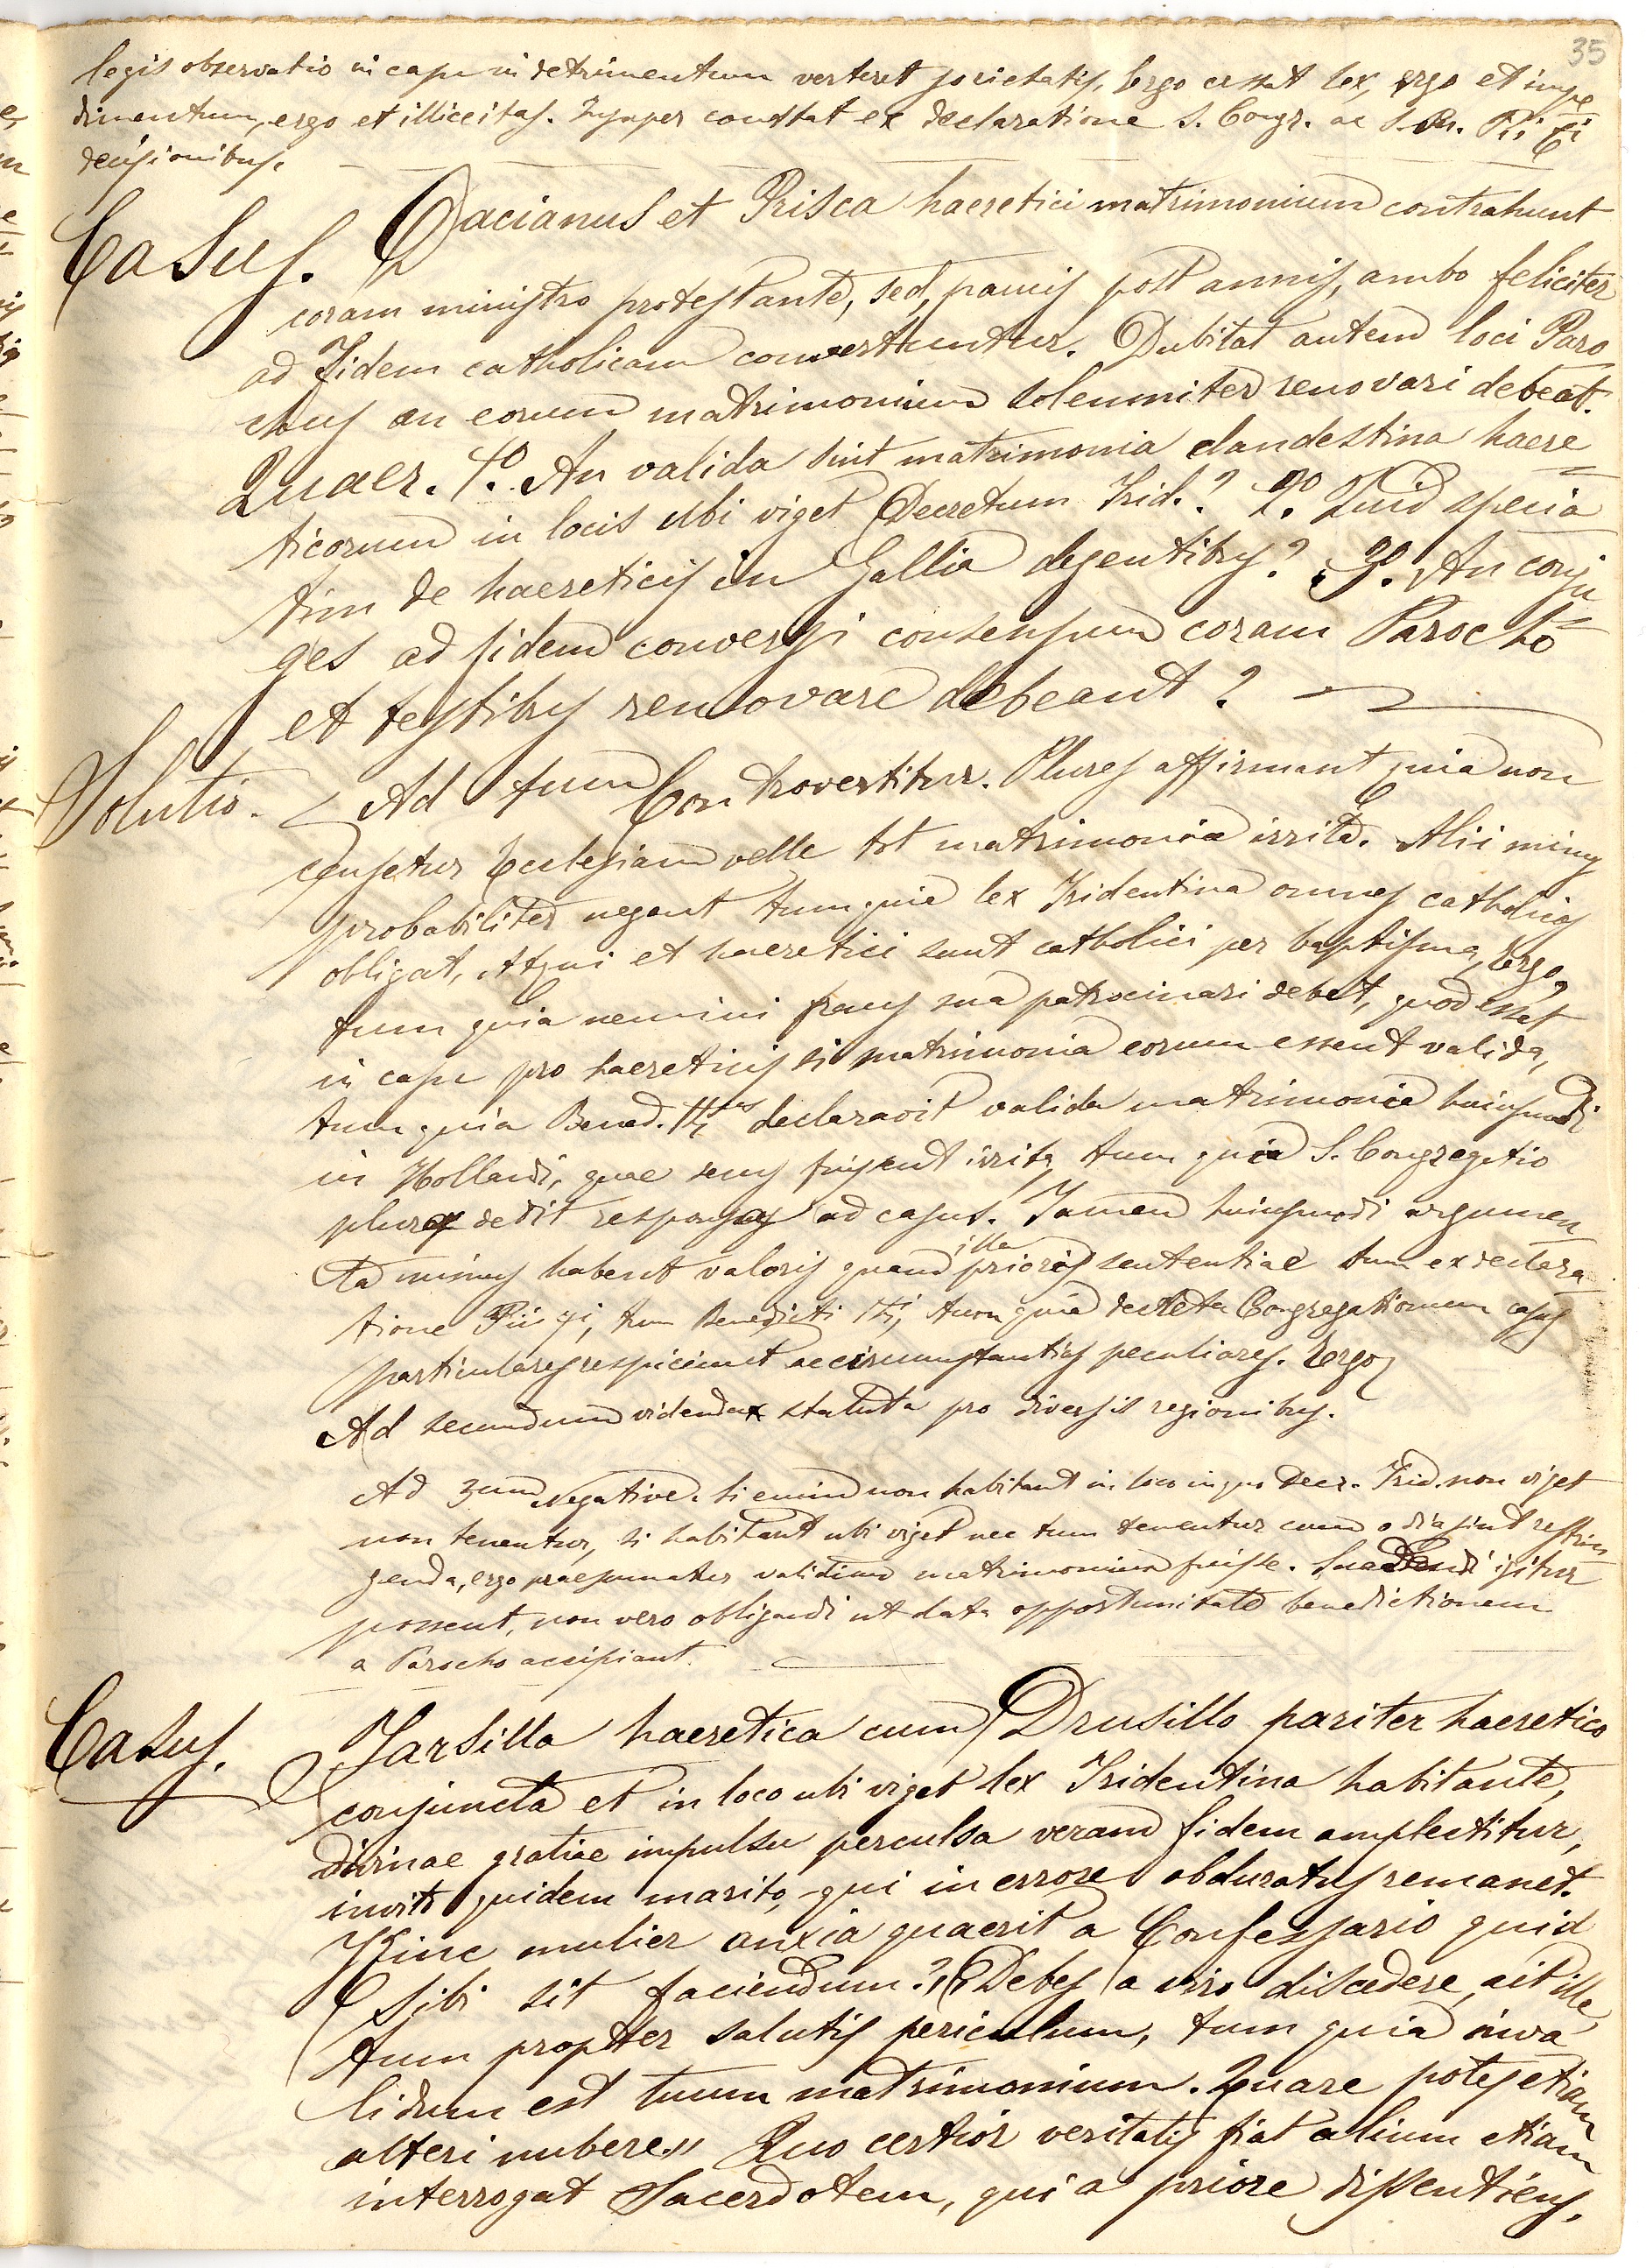 35
legis observatio in casu in detrimentum verteret societatis. Ergo cessat lex, ergo et impe
dimentum, ergo et illiceitas. Insuper constat ex declaratione S. Congr. ac S. Pii VI
decisionibus.
Casus. Dacianus et Prisca haeretici matrimonium contrahunt
coram ministro protestante, sed, paucis post annis, ambo feliciter
ad Fidem catholicam convertuntur. Dubitat autem loci Paro
chus an eorum matrimonium solemniter renovari debeat.
Quaer. 1o. An valida sint matrimonia clandestina haere
ticorum in locis ubi viget Decretum Trid.? 2o. Quid specia
tim de haereticis in Gallia degentibus? 3o. An conju
ges ad fidem conversi consensum coram Parocho
et testibus renovare debeant?
Solutio. Ad 1um Controvertitur. Plures affirmant quia non
censetur Ecclesiam velle tot matrimonia irrita. Alii minus
probabiliter negant tum quia lex Tridentina omnes catholicos
obligat, Atqui et haeretici sunt catholici per baptisma, Ergo,
tum quia nemini fraus sua patrocinari debet, quod esset
in casu pro haereticis si matrimonia eorum essent valida,
tum quia Bened. 14us declaravit valida matrimonia huiusmodi
in Hollandi, quae secus fuissent irrita, tum quia S. Congregatio
plura dedit responsa ad casus. Tamen huiusmodi argumen
ta minus habent valoris quam illa prioris sententiae tum ex declara
tione Pii VI, tum Benedicti 14i, tum quia decreta Congregationum casus
particulares respiciunt ac circumstantias peculiares. Ergo
Ad secundum videnda statuta pro diversis regionibus.
Ad 3um Negative. Si enim non habitant in loco in quo Decr. Trid. non viget
non tenentur, si habitant ubi viget nec tum tenentur cum odia sint restrin
genda, ergo praesumatur validum matrimonium fuisse. Suadendi igitur
possent, non vero obligandi ut data opportunitate benedictionem
a Parocho accipiant.
Casus. Tarsilla haeretica cum Drusillo pariter haeretico
conjuncta et in loco ubi viget lex Tridentina habitante,
divinae gratiae impulsu perculsa veram fidem amplectitur,
invito quidem marito, qui in errore obduratus remanet.
Hinc mulier anxia quaerit a Confessario quid
sibi sit faciendum? "Debes a viro discedere, ait ille
tum propter salutis periculum, tum quia inva
lidum est tuum matrimonium. Quare potes etiam
alteri nubere" Quo certior veritatis fiat alium etiam
interrogat Sacerdotem, qui a priore dissentiens,